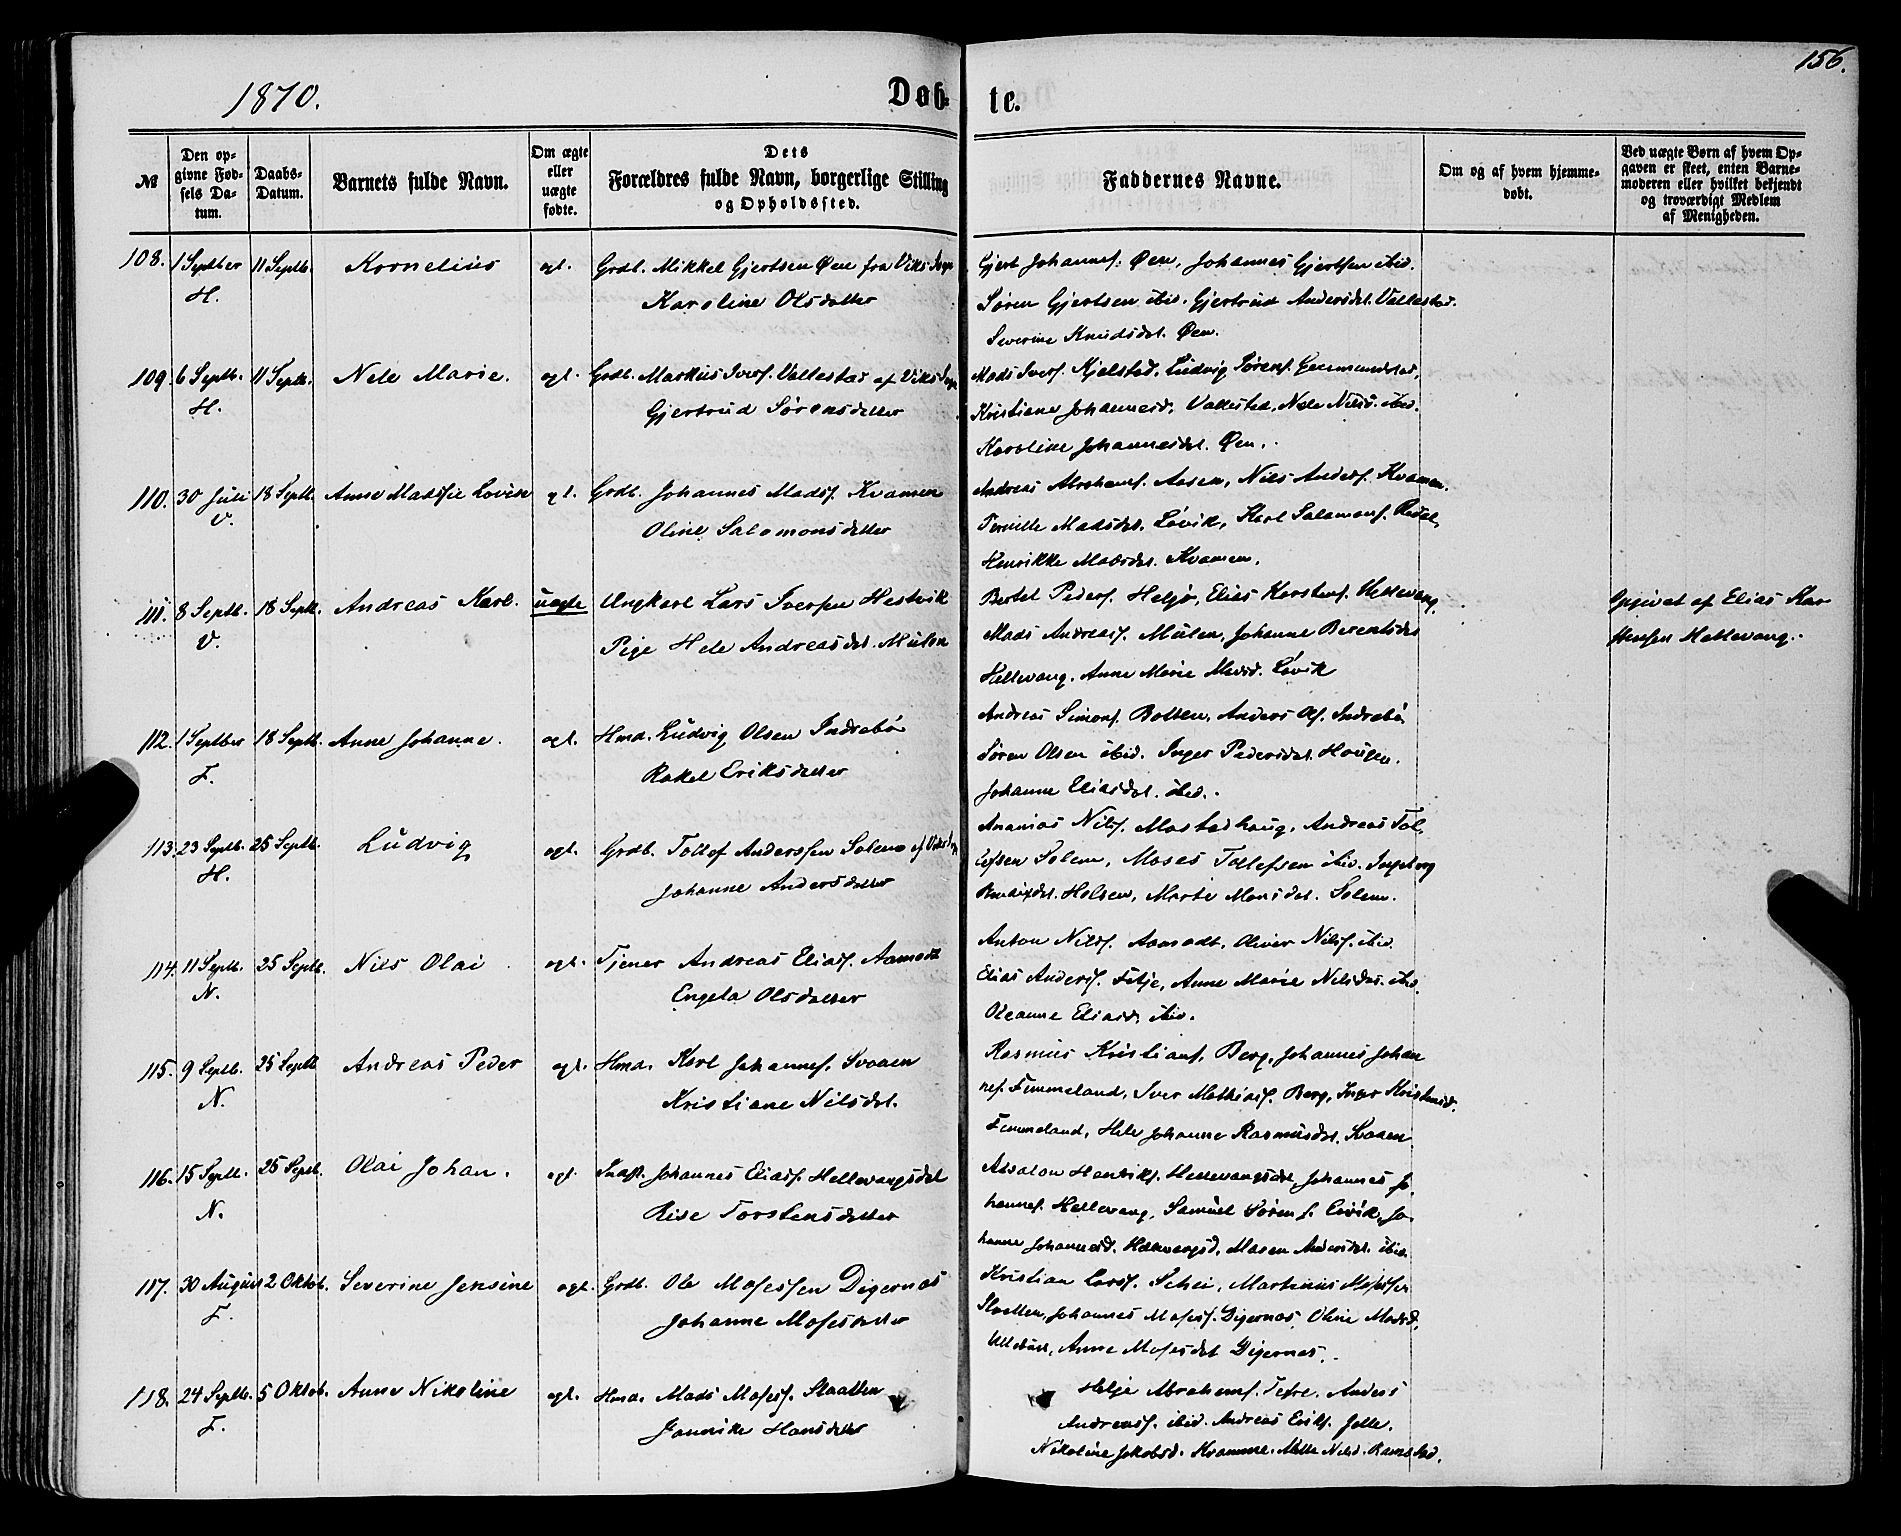 156.
1870.
Døb-
te.
№
Den op-
givne Fød-
sels Da-
tum.
Daabs-
Datum.
Barnets fulde Navn.
Om ægte
eller
uægte
fødte.
Dets
Forældres fulde Navn, borgerlige Stilling
og Opholdssted.
Faddernes Navne.
Om og af hvem hjemme-
døbt.
Ved uægte Børn af hvem Op-
gaven er skeet, enten Barne-
moderen eller hvilket bekjendt
og troværdigt Medlem
af Menigheden.
108. 1 Septber 11 Septb. Kornelius egt. Grdb. Mikkel Gjertsen Øen fra Viks Sogn
H. Karoline Olsdatter
Gjert Johannes. Øen, Johannes Gjertsen ibid.
Søren Gjertsen ibid. Gjertrud Andersdt. Vallestad.
Severine Knudsdt. Øen.
109. 6 Septb. 11 Septb. Nele Marie. egt. Grdb. Markus Ivers. Vallestad af Viks Sogn
H. Gjertrud Sørensdatter
Mads Ivers. Kjelstad. Ludvig Sørens.
Kristiane Johannesd. Vallestad, Nele Nilsd. ibid.
Karoline Johannesdt. Øen.
110. 30 Juli 18 Septb. Anne Madsie Lovise egt. Grdb. Johannes Mads. Kvamen
V. Oline Salomonsdatter
Andreas Abrahams. Aasen, Nils Anders. Kvamen.
Pernille Madsdt. Løvik, Karl Salamons. Redal,
Henrikke Madsdt. Kvamen.
111. 8 Septb. 18 Septb. Andreas Karl. uegte Ungkarl Lars Iversen Hestvik
V. Pige Hele Andreasdt. Mulen
Bertel Peders. Heljø, Elias Karstens. Hellevang,
Mads Andreas. Mulen, Johanne Berentsdt
Hellevang. Anne Marie Madsd. Løvik
Opgivet af Elias Kar-
stensen Hellevang.
112. 1 Septber 18 Septb. Anne Johanne. egt. Hmd. Ludvig Olsen Indrebø
F. Rakel Eriksdatter
Andreas Simons. Botten, Anders Ols. Indrebø
Søren Olsen ibid. Inger Pedersdt. Hougen.
Johanne Eliasdt. ibid.
113. 23 Septb. 25 Septb. Ludvig egt. Grdb. Tollef Anderssen Solem af Viks Sogn
H. Johanne Andersdatter
Ananias Nils. Mostadhaug, Andreas Tol-
lefsen Solem, Moses Tollefsen ibid. Ingeborg
Holsen, Marte Monsdt. Solem.
114. 11 Septb. 25 Septb. Nils Olai egt. Tjener Andreas Elias. Aamodt
N. Engela Olsdatter
Anton Nils. Aamodt, Oliver Nils. ibid.
Elias Anders. Fitje, Anne Marie Nilsdt. ibid.
Oleanne Eliasd. ibid.
115. 9 Septb. 25 Septb Andreas Peder egt. Hmd. Karl Johannes. Svaaen
N. Kristiane Nilsdt.
Rasmus Kristians. Berg, Johannes Johan
nes. Femmeland, Iver Mathias. Berg, Inger
Femmeland, Hele Johanne Rasmusdt. Svaaen
116. 15 Septb. 25 Septb. Olai Johan. egt. Johannes Elias. Hellevangsdal
N. Rise Torstensdatter
Absalon Henriks. Hellevangsdal, Johannes Jo-
hannes. Hellevang, Samuel Sørens. Eivik, Jo-
hanne Johannesd. Hellevangsd. Maren Andersdt. ibid.
117. 30 August 2 Oktob. Severine Jensine egt. Grdb. Ole Mosessen Digernes
F. Johanne Mosesdatter
Kristian Lars. Schei, Martinus Mosessen
Slaatten, Johannes Moses. Digernes, Oline Madsd.
Anne Mosesdt Digernes.
118. 24 Septb. 5 Oktob. Anne Nikoline egt. Hmd. Mads Moses. Slaatten
F. Jannike Hansdatter
Helje Abrahams. Tefre. Anders
Andreas. ibid. Andreas Eriks. Jelle.
Nikoline Jakobsd. Kvamme. Mette Nilsd. Ramstad.